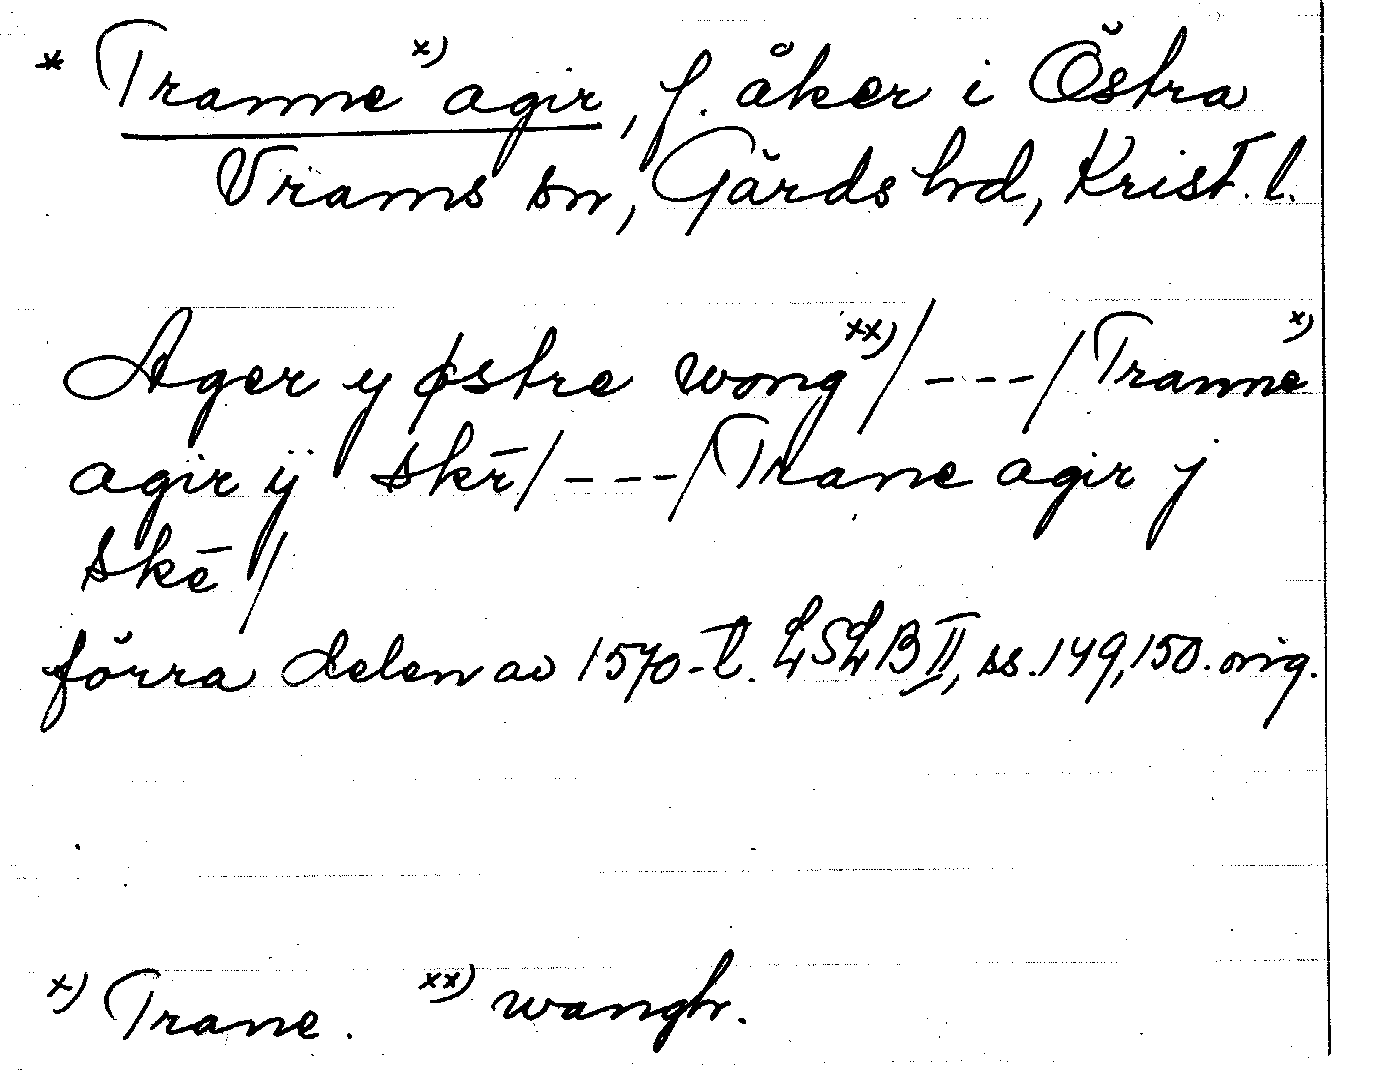 * Tranne x) agir, f. åker i Östra
Vrams sn, Gärds hd, Krist. l.
Ager y østre wong xx) / --- / Tranne x)
agir ÿ skr̄ / --- / Trane agir j
skē /
förra delen av 1570-t. LSLB II, ss. 149, 150. orig.
x) Trane. xx) wangh.